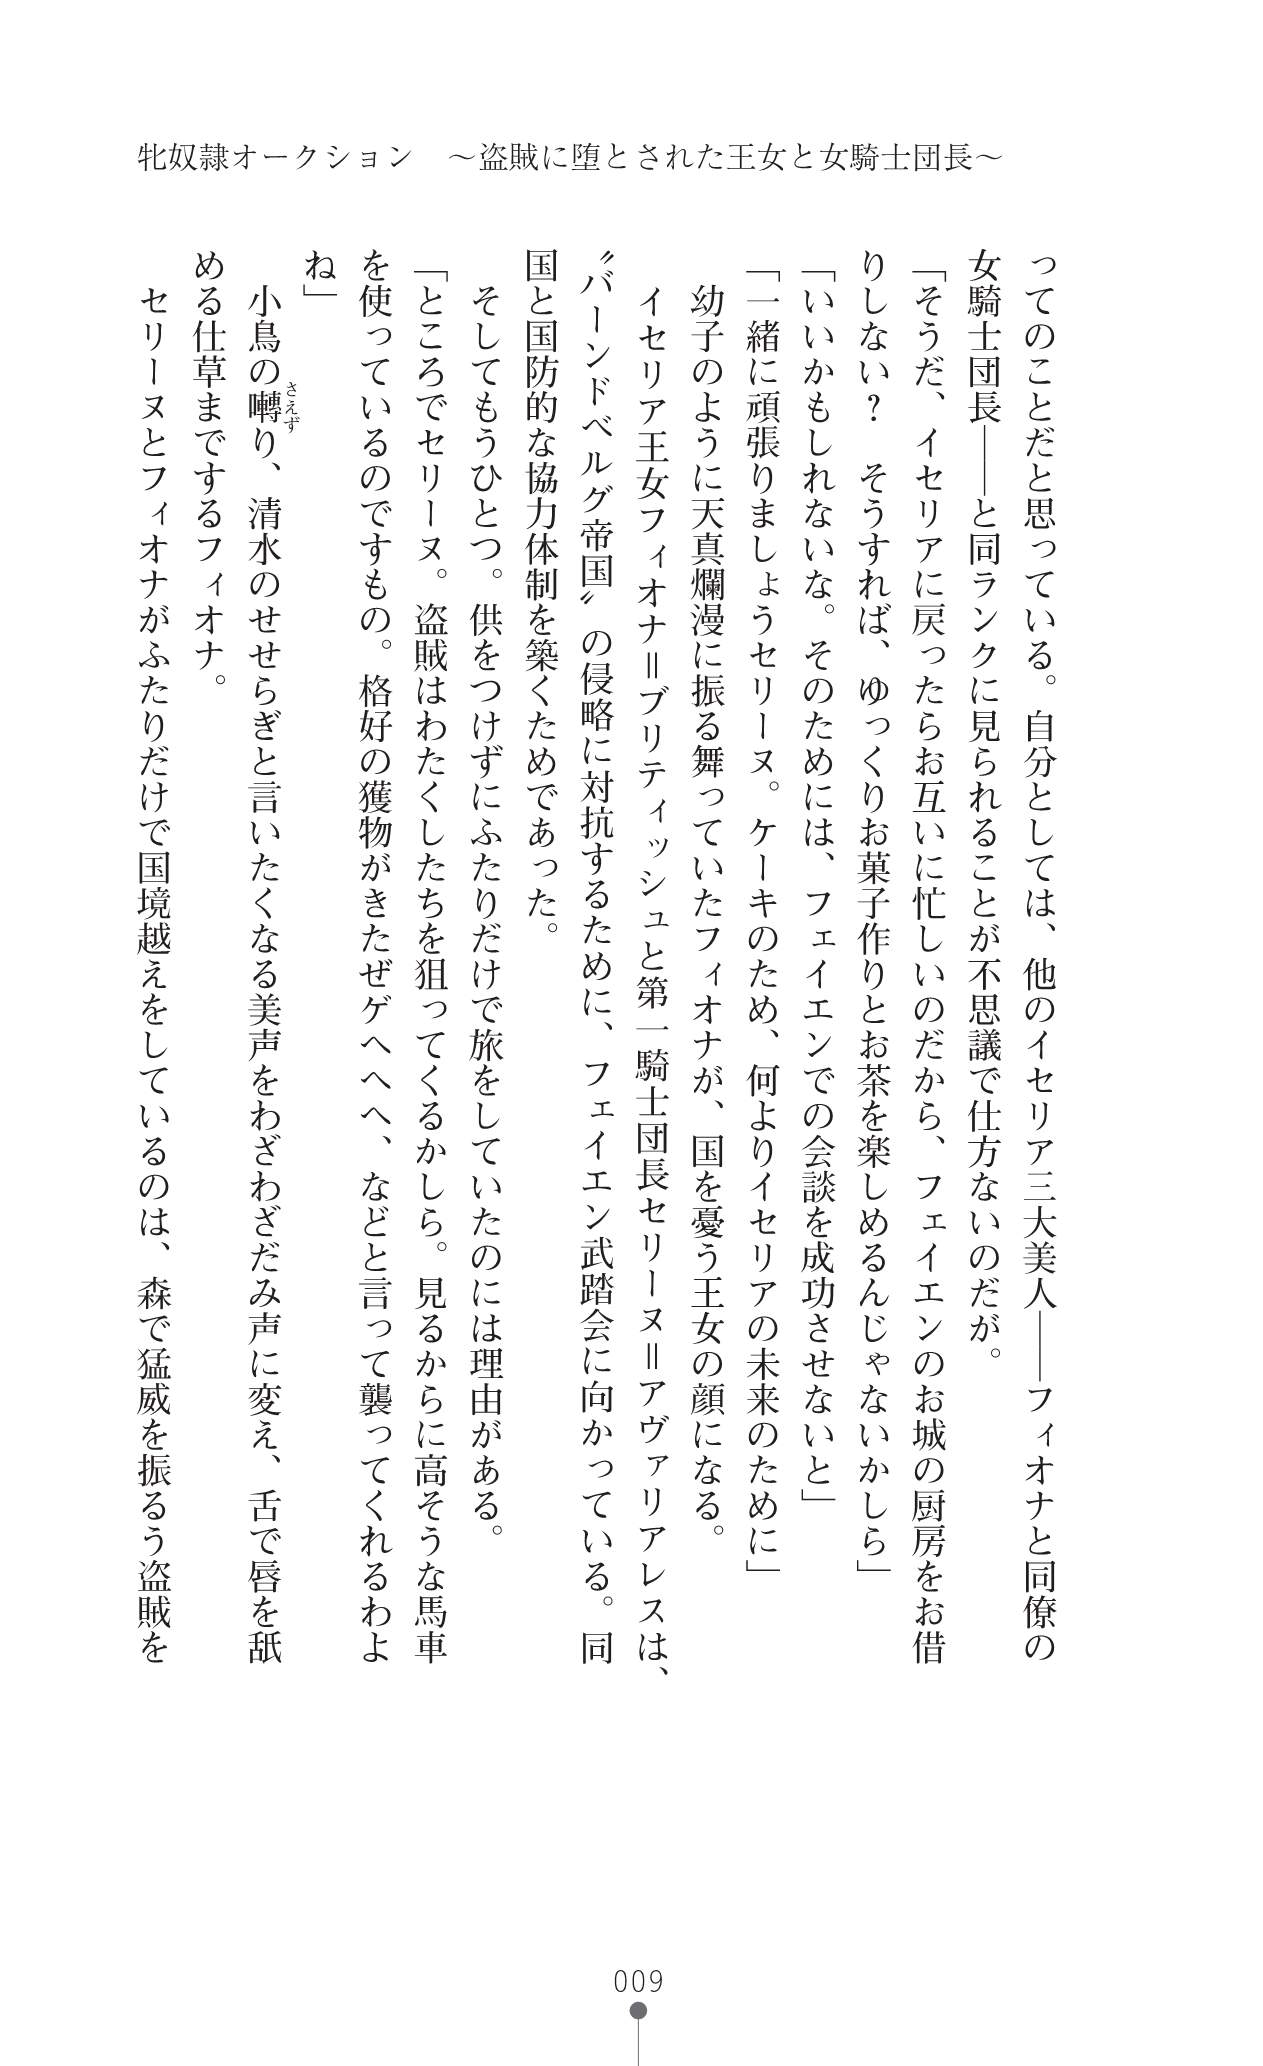 牝奴隷オークション　～盗賊に堕とされた王女と女騎士団長～
ってのことだと思っている。自分としては、他のイセリア三大美人――フィオナと同僚の
女騎士団長――と同ランクに見られることが不思議で仕方ないのだが。
「そうだ、イセリアに戻ったらお互いに忙しいのだから、フェイエンのお城の厨房をお借
りしない？　そうすれば、ゆっくりお菓子作りとお茶を楽しめるんじゃないかしら」
「いいかもしれないな。そのためには、フェイエンでの会談を成功させないと」
「一緒に頑張りましょうセリーヌ。ケーキのため、何よりイセリアの未来のために」
　幼子のように天真爛漫に振る舞っていたフィオナが、国を憂う王女の顔になる。
　イセリア王女フィオナ＝ブリティッシュと第一騎士団長セリーヌ＝アヴァリアレスは、
〝バーンドベルグ帝国〟の侵略に対抗するために、フェイエン武踏会に向かっている。同
国と国防的な協力体制を築くためであった。
　そしてもうひとつ。供をつけずにふたりだけで旅をしていたのには理由がある。
「ところでセリーヌ。盗賊はわたくしたちを狙ってくるかしら。見るからに高そうな馬車
を使っているのですもの。格好の獲物がきたぜゲヘヘヘ、などと言って襲ってくれるわよ
ね」
　小鳥の囀り、清水のせせらぎと言いたくなる美声をわざわざだみ声に変え、舌で唇を舐
さえず
める仕草までするフィオナ。
　セリーヌとフィオナがふたりだけで国境越えをしているのは、森で猛威を振るう盗賊を
009